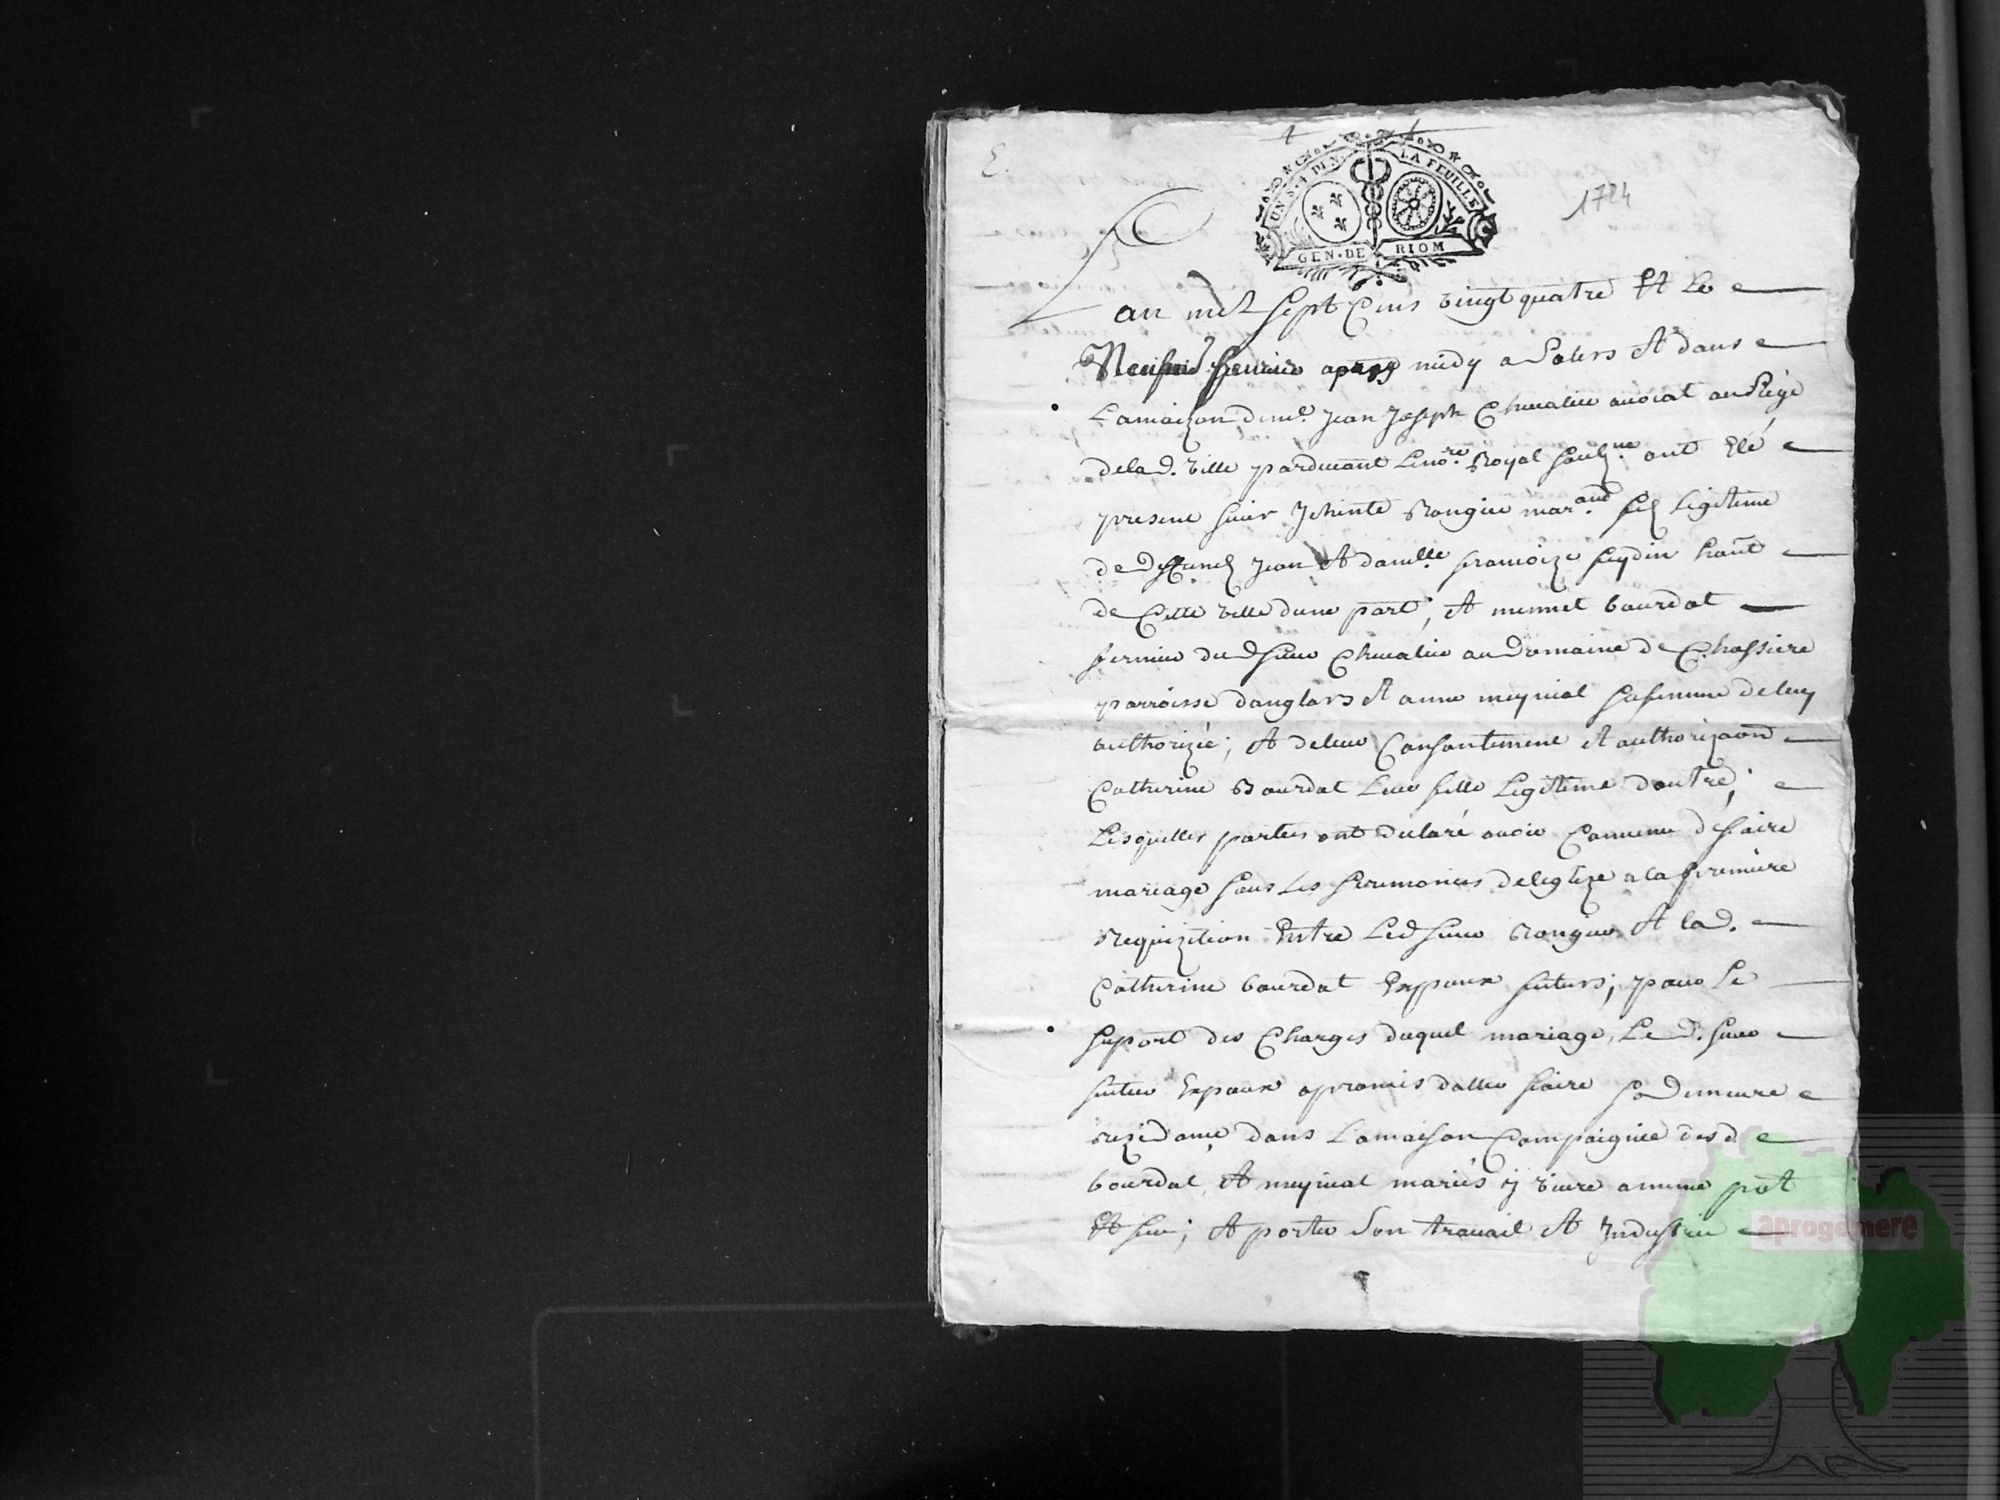 E.
UN S. 4 DEN. LA FEUILLE
GEN. DE RIOM
1724
Lan mil sept cens vingt quatre Et Le
fevrier apres midy a Salers et dans
La maizon de me. Jean Joseph Chevalier avocat au siege
de la d. ville pardevant Le nore. Royal ont Eté
present sieur Rongier marand. fils Legitime
de deffunct Jean et damlle. francoize feydin hant
de Cette ville dune part; et bourdat
fermier dud sieur Chevalier au Domaine de Chassiere
parroisse danglars et anne meynial sa femme de luy
authorizée; et de leur Consantement et authorizaon
Catherine Bourdat Leur fille Legitime dautre;
Lesquelles parties ont declaré avoir Convenu de faire
mariage sous Les seremonies de leglize a la premiere
Requizition Entre Led sieur Rongier et la d.
Catherine bourdat Expoux futurs; pour Le
suport des Charges duquel mariage, Le d. sieur
futur Expoux a promis daller faire sa Demeure
rezidance dans La maison Compaignie desd
bourdat et meynial mariés y vivre a mesme pot
Et feu; et porter son travail et Industrie
aprogemere